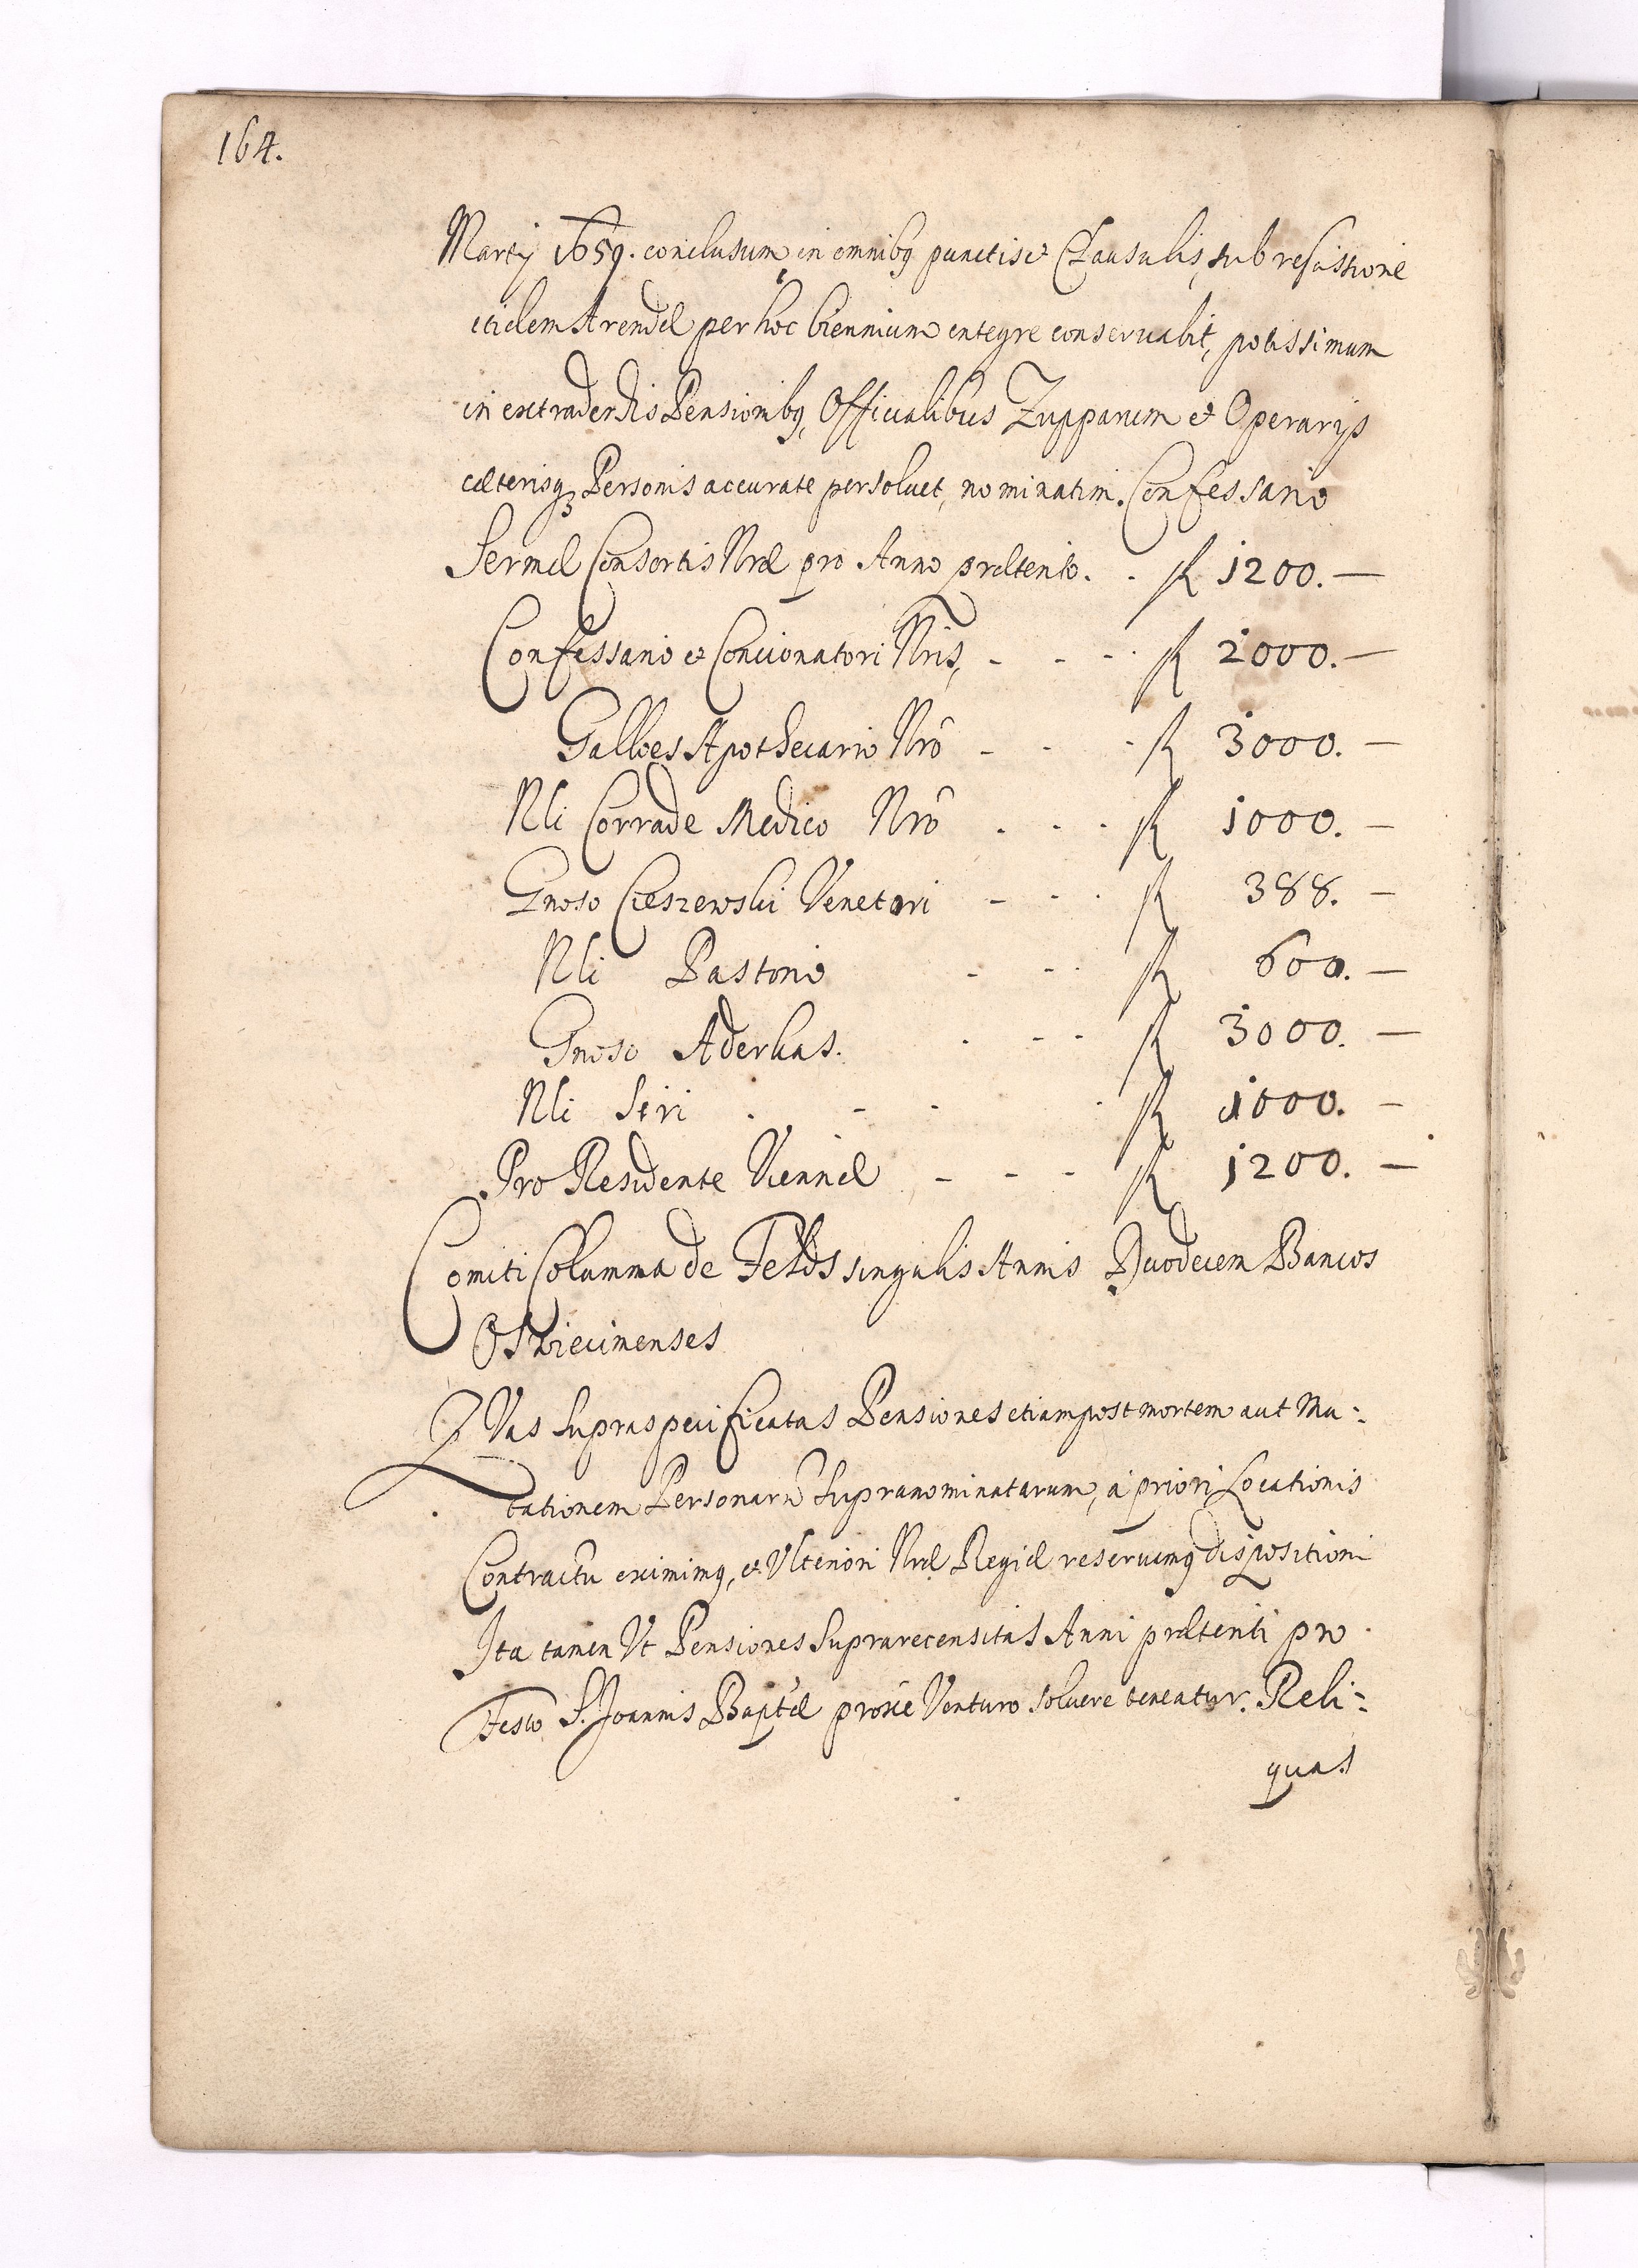 164.
Martij 1659. conclusum, in omnibq punctis et Clausulis, sub rescissione
eiusdem Arendæ per hoc biennium integre conservabit, potissimum
in extradendis Pensionibq, Officialibus Zupparum et Operarijs
cæterisq Personis accurate persolvet, nominatim. Confessario
Sermæ Consortis Nræ pro Anno præterito. . fl 1200. —
Confessario et Concionatori Nris, - - - . fl 2000. —
Galloes Apothecario Nro - - - fl 3000. —
Nli Corrade Medico Nro . . . fl 1000. —
Gnoso Cieszewski Venatori - - . fl 388. —
Nli Pastorio - - . fl 600. —
Gnoso Aderkas. . - - fl 3000. —
Nli Siri . - - . fl 1000. —
Pro Residente Viennæ - - - fl 1200. —
Comiti Columna de Fels singulis Annis Duodecem Bancos
Oswiecimenses
QVas supraspecificatas Pensiones etiam post mortem aut Mu-:
tationem Personarū supranominatarum, a priori Locationis
Contractu eximimq, et Ulteriori Nræ Regiæ reservamq dispositioni
Ita tamen Vt Pensiones suprarecensitas Anni præteriti pro
Festo S. Joannis Baptæ proxe Venturo solvere teneatur. Reli-:
quas